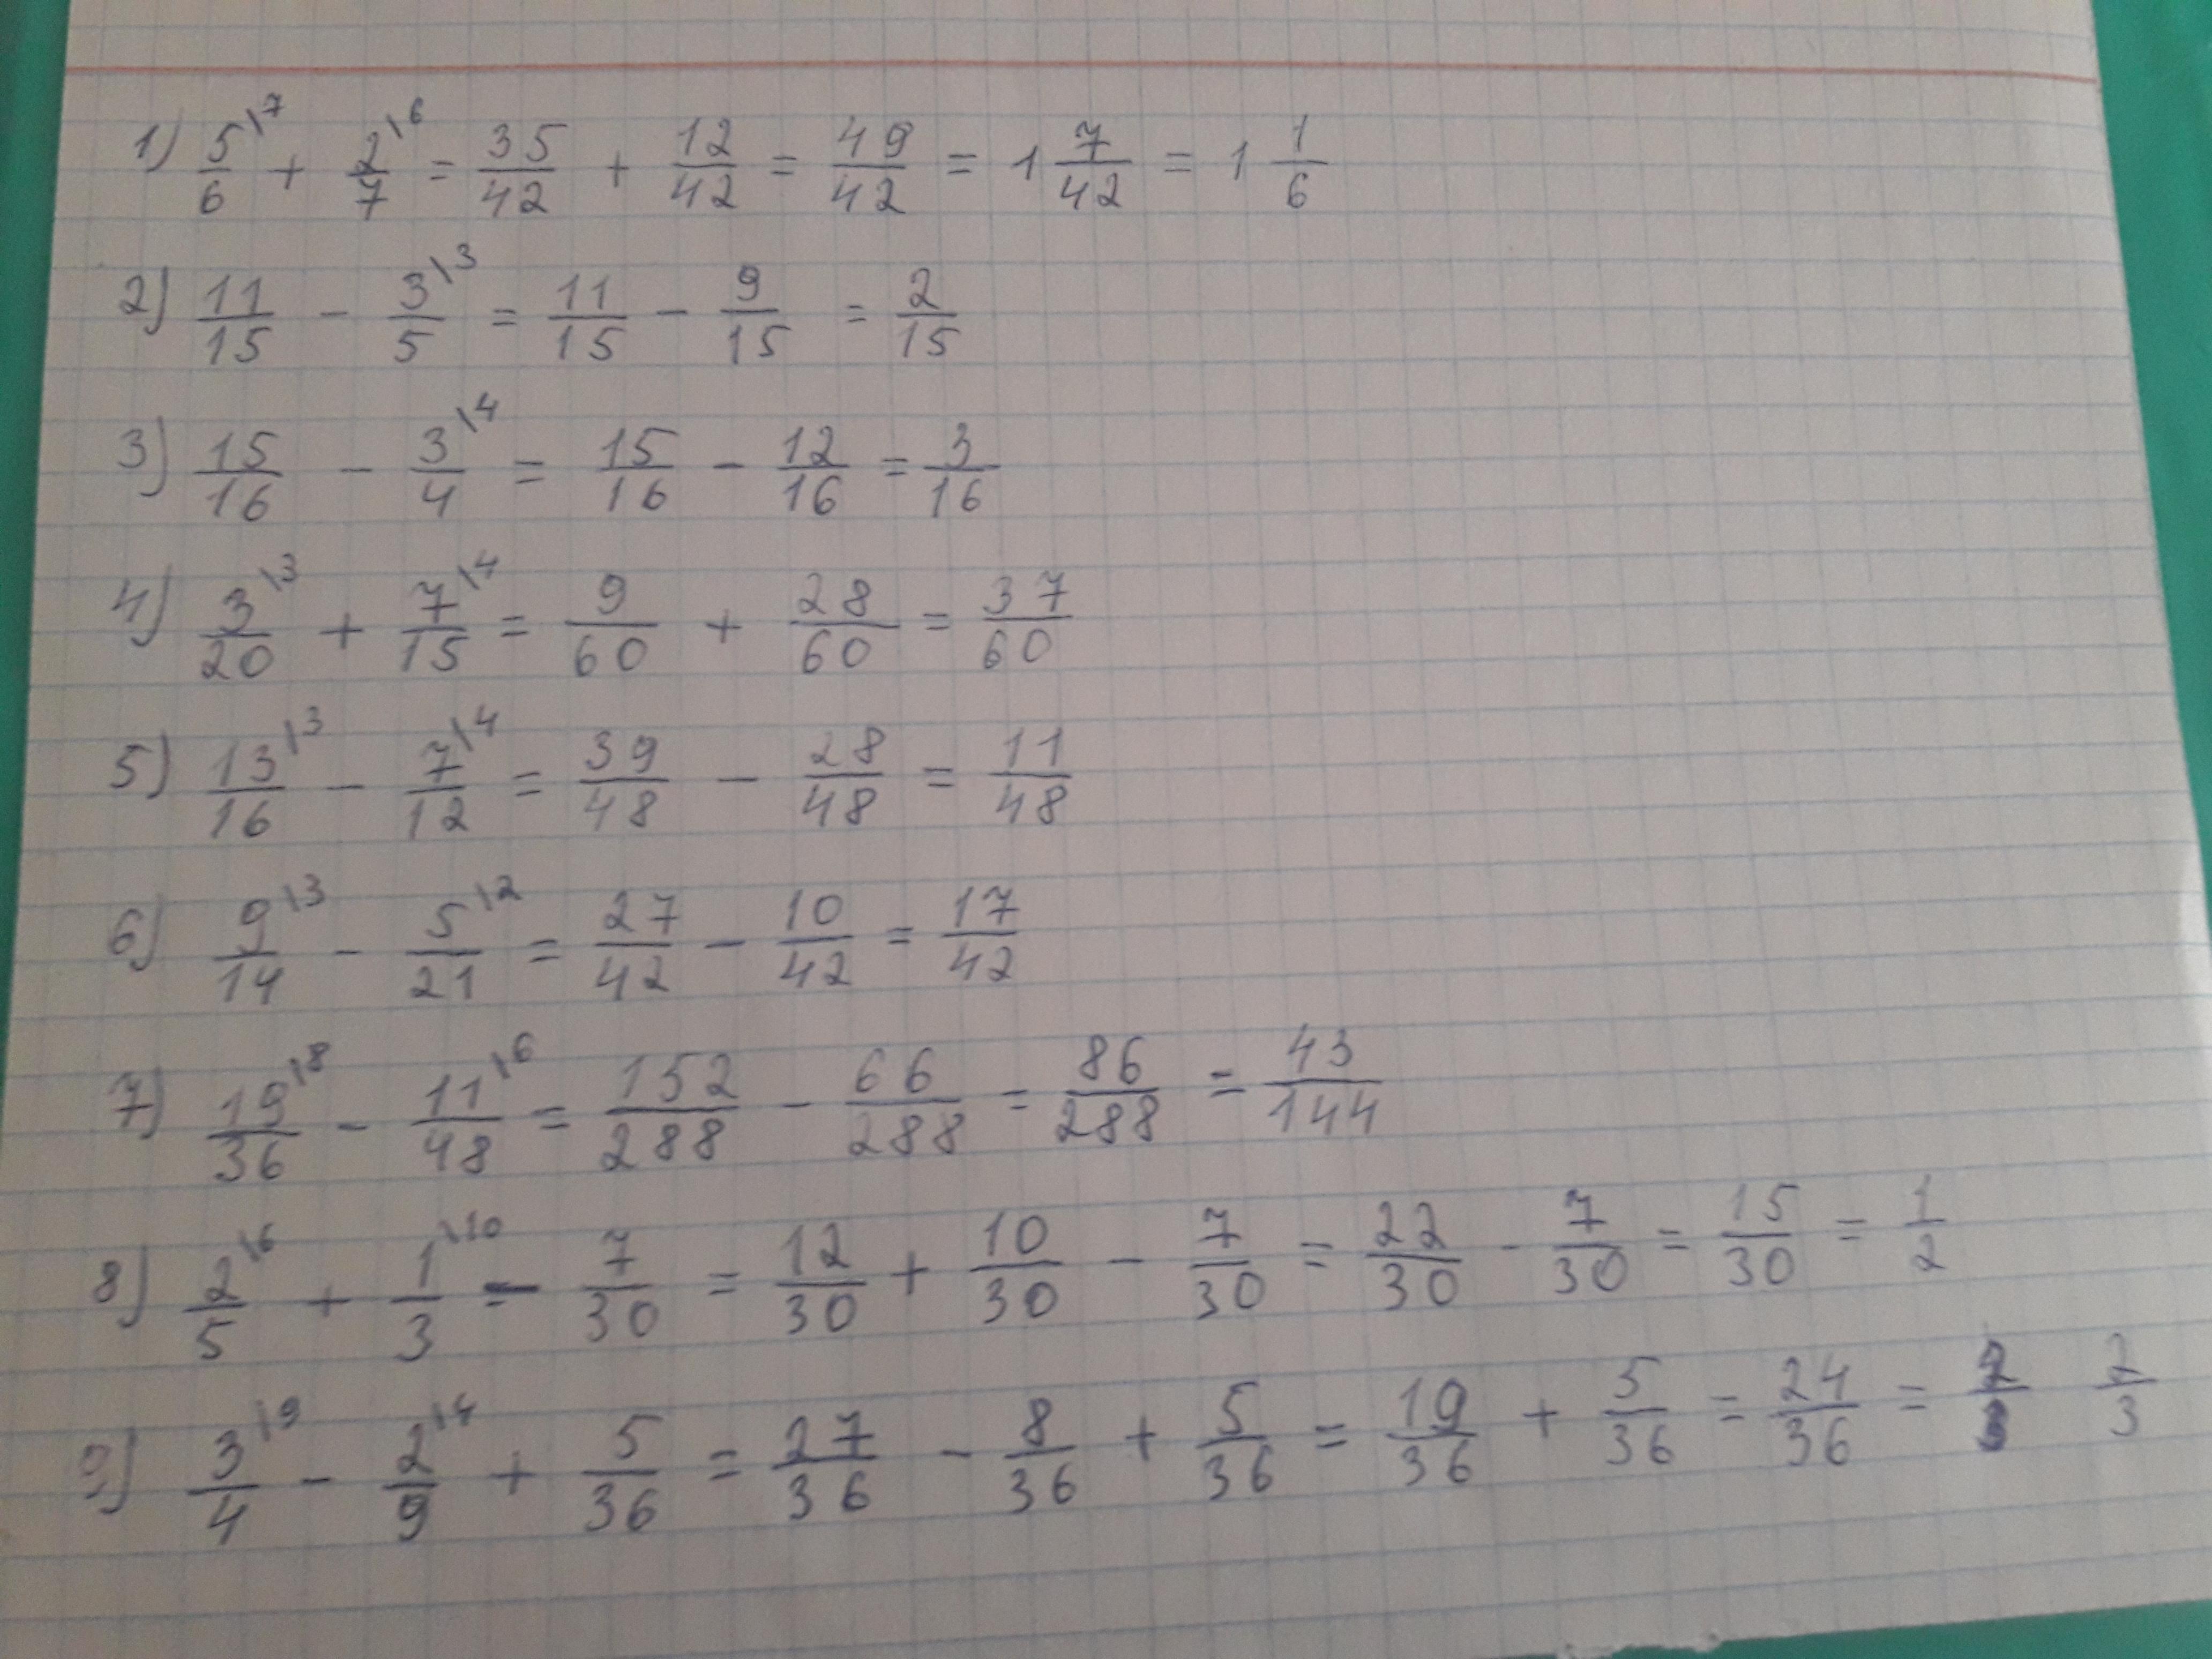 1) 5/6 \7 + 2/7 \6 = 35/42 + 12/42 = 49/42 = 1 7/42 = 1 1/6
2) 11/15 - 3/5 \3 = 11/15 - 9/15 = 2/15
3) 15/16 - 3/4 \4 = 15/16 - 12/16 = 3/16
4) 3/20 \3 + 7/15 \4 = 9/60 + 28/60 = 37/60
5) 13/16 \3 - 7/12 \4 = 39/48 - 28/48 = 11/48
6) 9/14 \3 - 5/21 \2 = 27/42 - 10/42 = 17/42
7) 19/36 \8 - 11/48 \6 = 152/288 - 66/288 = 86/288 = 43/144
8) 2/5 \6 + 1/3 \10 - 7/30 = 12/30 + 10/30 - 7/30 = 22/30 - 7/30 = 15/30 = 1/2
9) 3/4 \9 - 2/9 \4 + 5/36 = 27/36 - 8/36 + 5/36 = 19/36 + 5/36 = 24/36 = 2/3